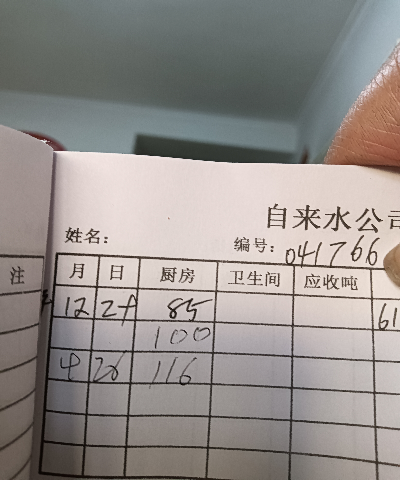 自来水公司
姓名: 编号: 041766
注 月 日 厨房 卫生间 应收吨
12 24 85 61
100
4 26 116